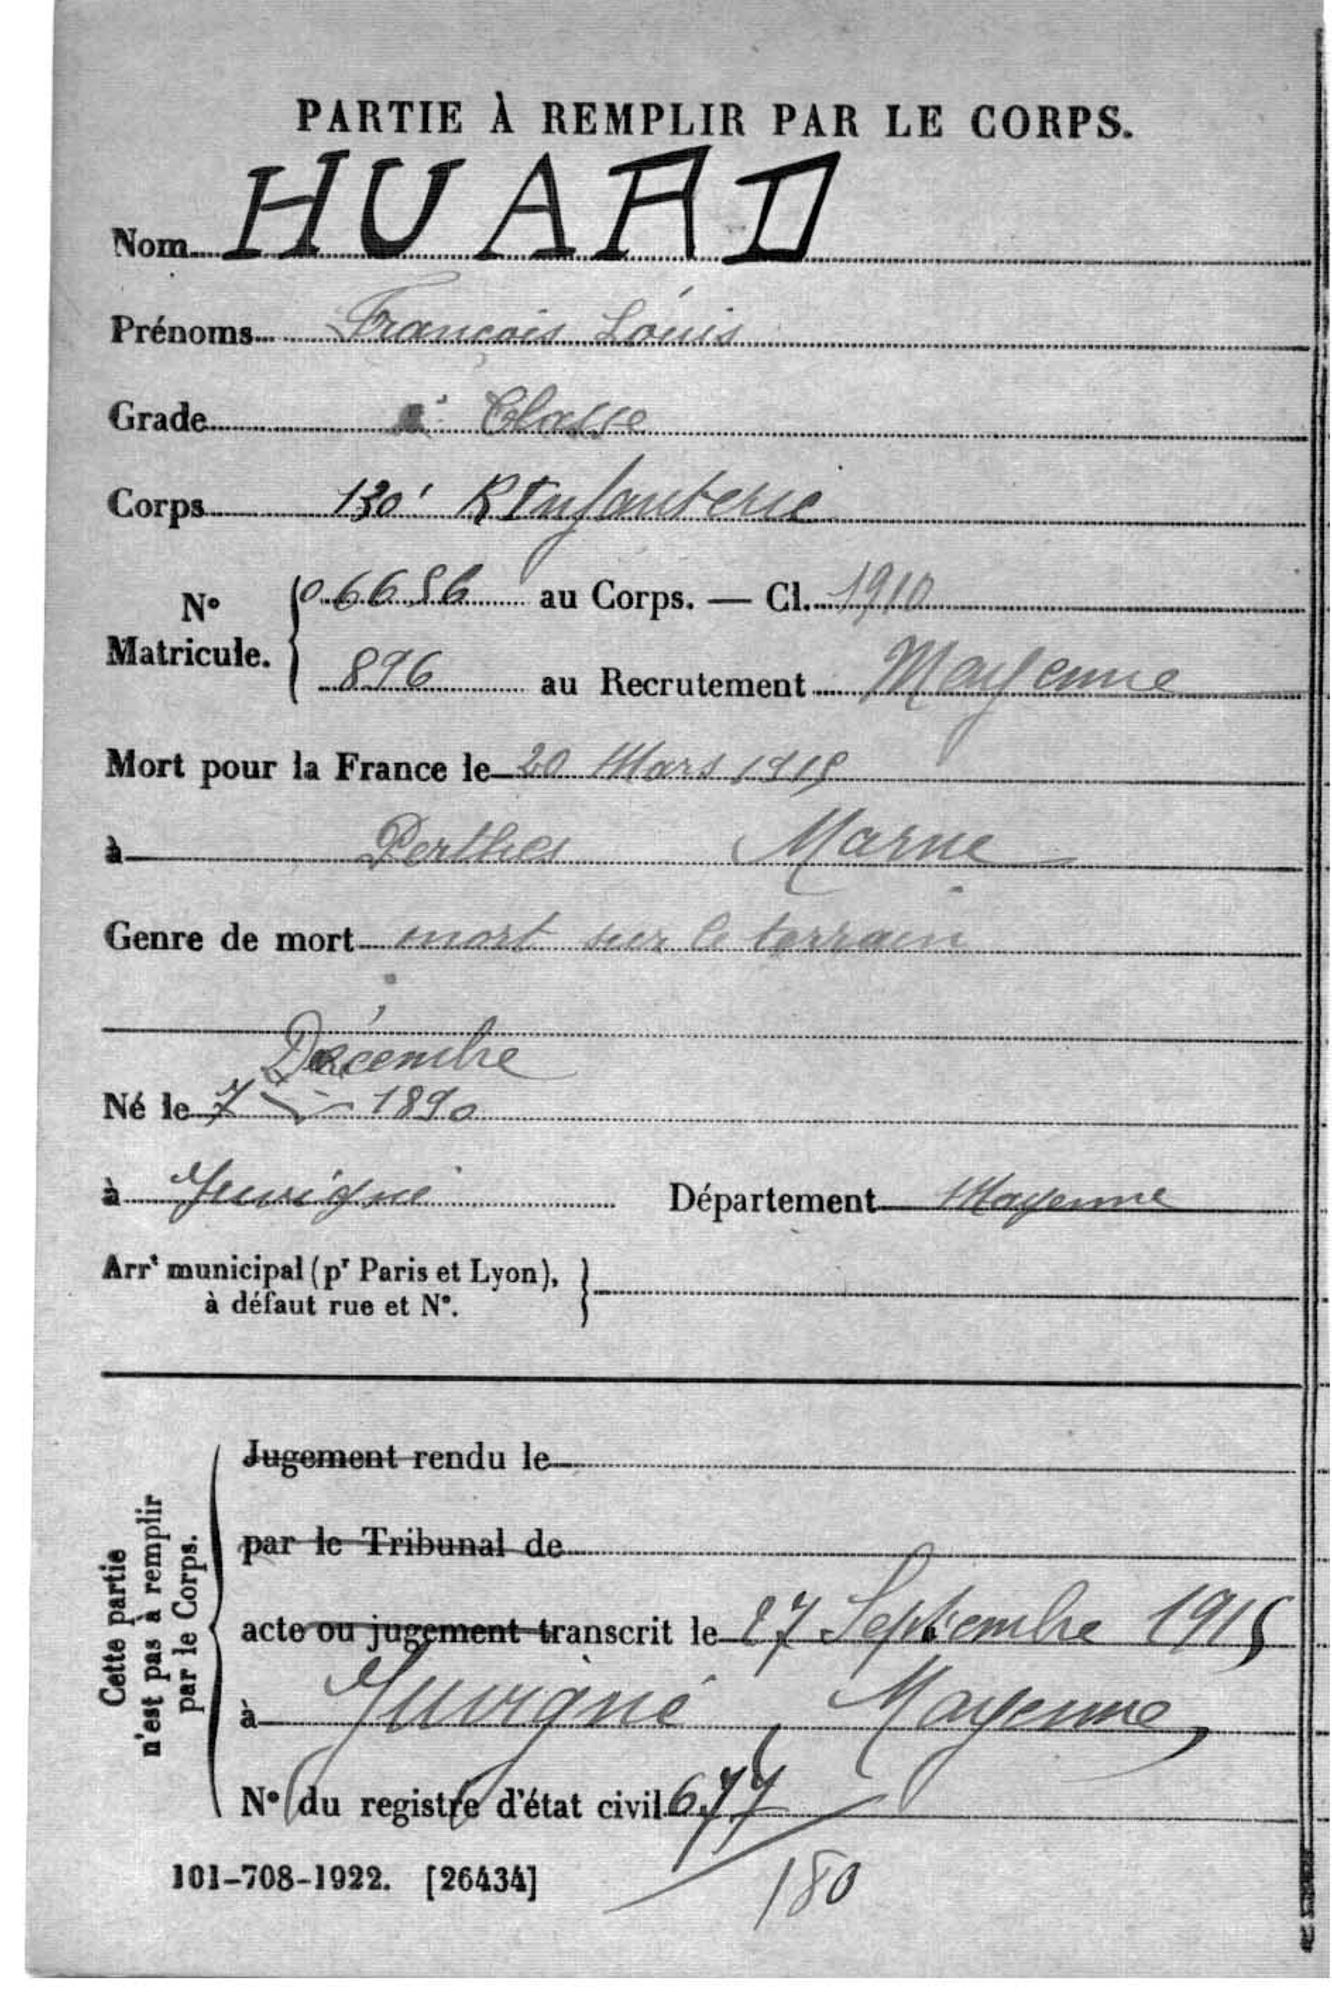 PARTIE À REMPLIR PAR LE CORPS.
Nom HUARD
Prénoms François Louis
Grade 2e Classe
Corps 130e R Infanterie
N° Matricule. 06656 au Corps. — Cl. 1910
896 au Recrutement Mayenne
Mort pour la France le 20 Mars 1915
à Perthes Marne
Genre de mort mort sur le terrain
Décembre
Né le 7 1890
à Juvigné Département Mayenne
Arrt municipal (pr Paris et Lyon),
à défaut rue et N°.
Cette partie
n'est pas à remplir
par le Corps.
Jugement rendu le
par le Tribunal de
acte ou jugement transcrit le 27 Septembre 1915
à Juvigné, Mayenne,
N° du registre d'état civil 677
180
101-708-1922. [26434]